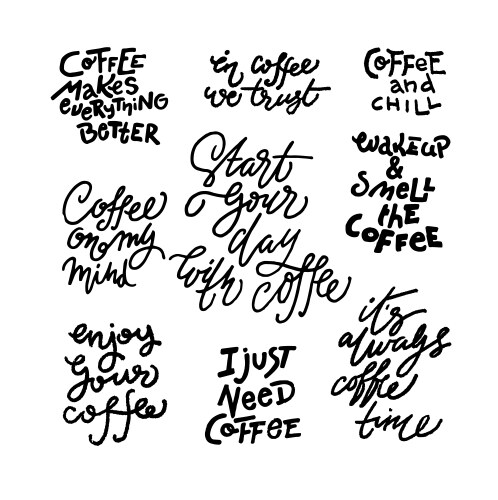 COFFEE
MAKES
EVERYTHING
BETTER
in coffee
we trust
COFFEE
and
CHILL
Start
your
day
with coffee
WAKE UP
&
SMELL
tHE
COFFEE
Coffee
on my
mind
enjoy
your
coffee
I JUST
NEED
COFFEE
it's
always
coffee
time